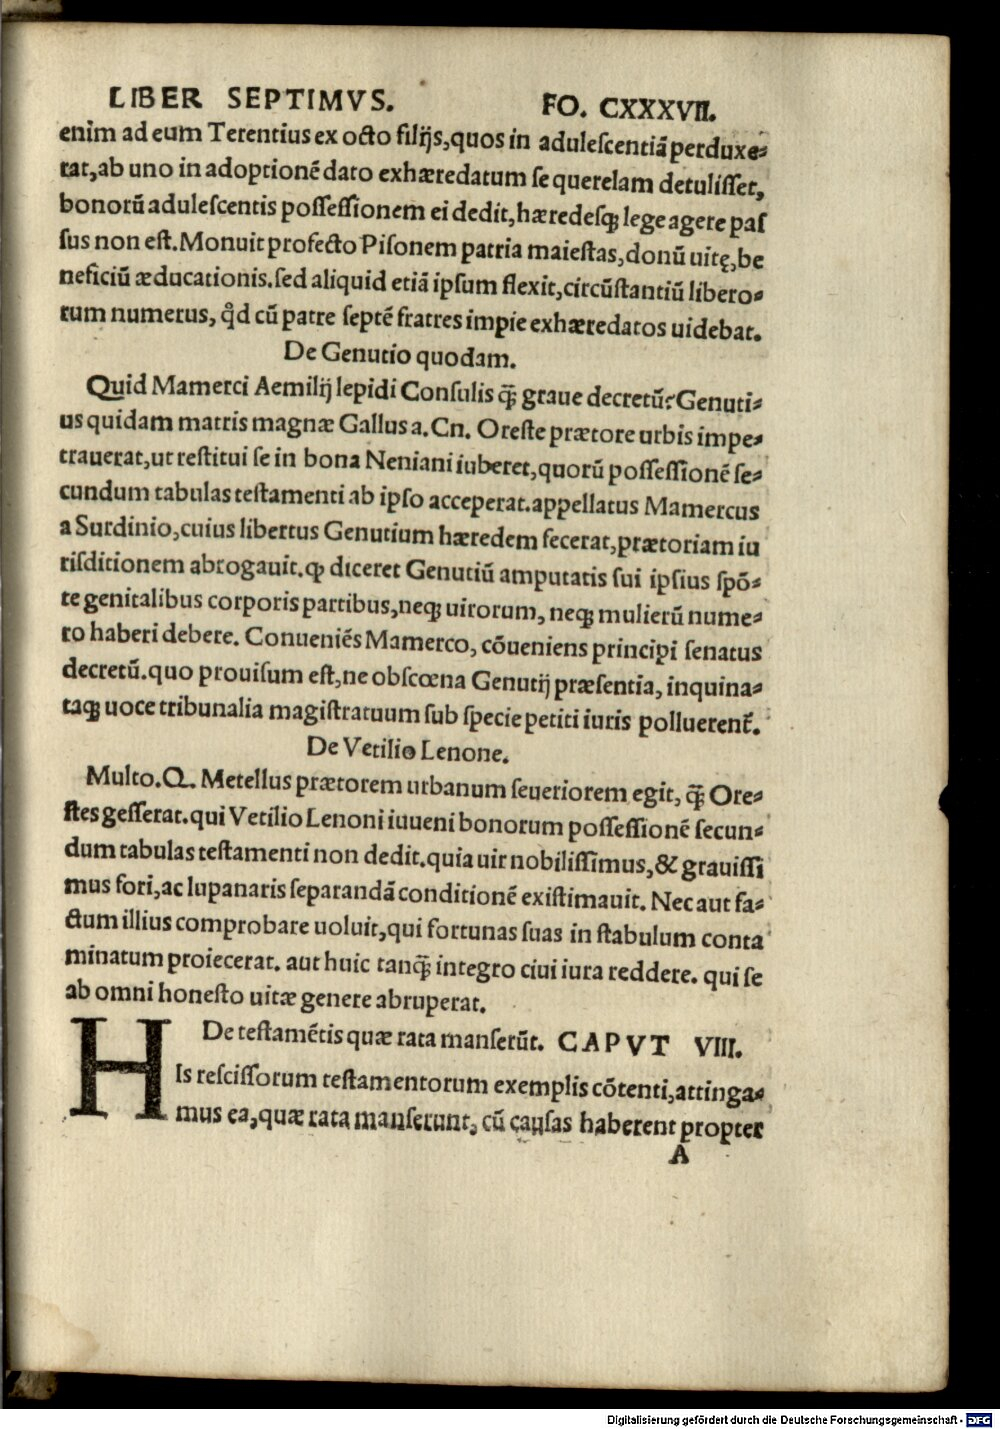 LIBER SEPTIMVS. FO. CXXXVII.
enim ad eum Terentius ex octo filijs, quos in adulescentiā perduxe-
rat, ab uno in adoptionē dato exhæredatum se querelam detulisset,
bonorū adulescentis possessionem ei dedit, hæredesq; lege agere pas
sus non est. Monuit profecto Pisonem patria maiestas, donū uitę, be
neficiū æducationis. sed aliquid etiā ipsum flexit, circūstantiū libero-
rum numerus, qd̊ cū patre septē fratres impie exhæredatos uidebat.
De Genutio quodam.
Quid Mamerci Aemilij lepidi Consulis q̃ graue decretū? Genuti-
us quidam matris magnæ Gallus a. Cn. Oreste prætore urbis impe-
trauerat, ut restitui se in bona Neniani iuberet, quorū possessionē se-
cundum tabulas testamenti ab ipso acceperat. appellatus Mamercus
a Surdinio, cuius libertus Genutium hæredem fecerat, prætoriam iu
risditionem abrogauit. ꝙ diceret Genutiū amputatis sui ipsius spō-
te genitalibus corporis partibus, neq; uirorum, neq; mulierū nume-
ro haberi debere. Conueniēs Mamerco, cōueniens principi senatus
decretū. quo prouisum est, ne obscœna Genutij præsentia, inquina-
taq; uoce tribunalia magistratuum sub specie petiti iuris polluerent̃.
De Vetilio Lenone.
Multo. Q. Metellus prætorem urbanum seueriorem egit, q̃ Ore-
stes gesserat. qui Vetilio Lenoni iuueni bonorum possessionē secun-
dum tabulas testamenti non dedit. quia uir nobilissimus, & grauissi
mus fori, ac lupanaris separandā conditionē existimauit. Nec aut fa-
ctum illius comprobare uoluit, qui fortunas suas in stabulum conta
minatum proiecerat. aut huic tanq̃ integro ciui iura reddere. qui se
ab omni honesto uitæ genere abruperat.
De testamētis quæ rata manserūt. CAPVT VIII.
HIs rescissorum testamentorum exemplis cōtenti, attinga-
mus ea, quæ rata manserunt, cū causas haberent propter
A
Digitalisierung gefördert durch die Deutsche Forschungsgemeinschaft - DFG